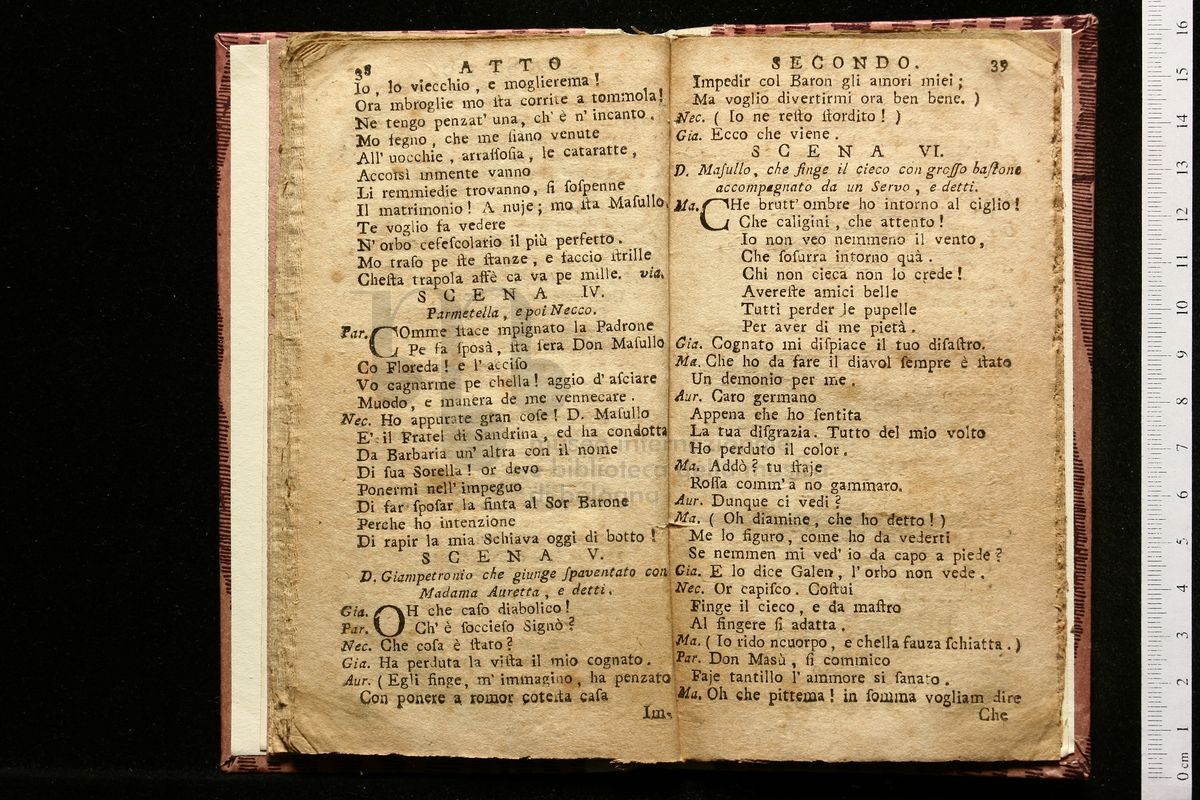 38 ATTO
Io, lo viecchio, e moglierema!
Ora mbroglie mo ſta corrite a tommola!
Ne tengo penzat' una, ch' è n' incanto.
Mo fegno, che me ſiano venute
All' uocchie, arraſſoſia, le cataratte,
Accossì mmente vanno
Li remmiedie trovanno, ſi ſoſpenne
Il matrimonio! A nuje; mo ſta Maſullo
Te voglio fa vedere
N' orbo cefeſcolario il più perfetto.
Mo traſo pe ſte ſtanze, e faccio ſtrille
Cheſta trapola affè ca va pe mille. via.
SCENA IV.
Parmetella, e poi Necco.
Par. COmme ſtace mpignato la Padrone
Pe fa ſposà, ſta ſera Don Maſullo
Co Floreda! e l' acciſo
Vo cagnarme pe chella! aggio d' aſciare
Muodo, e manera de me vennecare.
Nec. Ho appurate gran coſe! D. Maſullo
E' il Fratel di Sandrina, ed ha condotta
Da Barbaria un' altra con il nome
Di ſua Sorella! or devo
Ponermi nell' impeguo
Di far ſpoſar la finta al Sor Barone
Perche ho intenzione
Di rapir la mia Schiava oggi di botto!
SCENA V.
D. Giampetronio che giunge ſpaventato con
Madama Auretta, e detti.
Gia. OH che caſo diabolico!
Par. Ch' è ſoccieſo Signò?
Nec. Che coſa è ſtato?
Gia. Ha perduta la viſta il mio cognato.
Aur. (Egli finge, m' immagino, ha penzato
Con ponere a romor coteſta caſa
Im-
SECONDO. 39
Impedir col Baron gli amori miei;
Ma voglio divertirmi ora ben bene. )
Nec. ( Io ne reſto ſtordito! )
Gia. Ecco che viene.
SCENA VI.
D. Maſullo, che finge il cieco con groſſo baſtone
accompagnato da un Servo, e detti.
Ma. CHe brutt' ombre ho intorno al ciglio!
Che caligini, che attento!
Io non veo nemmeno il vento,
Che ſoſurra intorno quà.
Chi non cieca non lo crede!
Avereſte amici belle
Tutti perder le pupelle
Per aver di me pietà.
Gia. Cognato mi diſpiace il tuo diſaſtro.
Ma. Che ho da fare il diavol ſempre è ſtato
Un demonio per me.
Aur. Caro germano
Appena che ho ſentita
La tua diſgrazia. Tutto del mio volto
Ho perduto il color.
Ma. Addò? tu ſtaje
Roſſa comm' a no gammaro.
Aur. Dunque ci vedi?
Ma. ( Oh diamine, che ho detto! )
Me lo figuro, come ho da vederti
Se nemmen mi ved' io da capo a piede?
Gia. E lo dice Galen, l' orbo non vede.
Nec. Or capiſco. Coſtui
Finge il cieco, e da maſtro
Al fingere ſi adatta.
Ma. ( Io rido ncuorpo, e chella fauza ſchiatta. )
Par. Don Masù, ſi commico
Faje tantillo l' ammore si ſanato.
Ma. Oh che pittema! in ſomma vogliam dire
Che